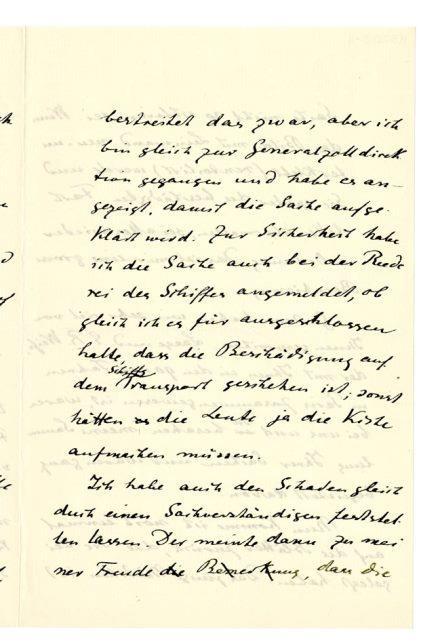 bestreitet das zwar, aber ich
bin gleich zur Generalzolldirek
tion gegangen und habe es an-
gezeigt, damit die Sache aufge-
klärt wird. Zur Sicherheit habe
ich die Sache auch bei der Reede
rei des Schiffes angemeldet, ob
gleich ich es für ausgeschlossen
halte, dass die Beschädigung auf
dem Schiffstransport geschehen ist; sonst
hätten die Leute ja die Kiste
aufmachen müssen.
Ich habe auch den Schaden gleich
durch einen Sachverständigen feststel-
len lassen. Der meinte dann zu mei
ner Freude die Bemerkung, dass die